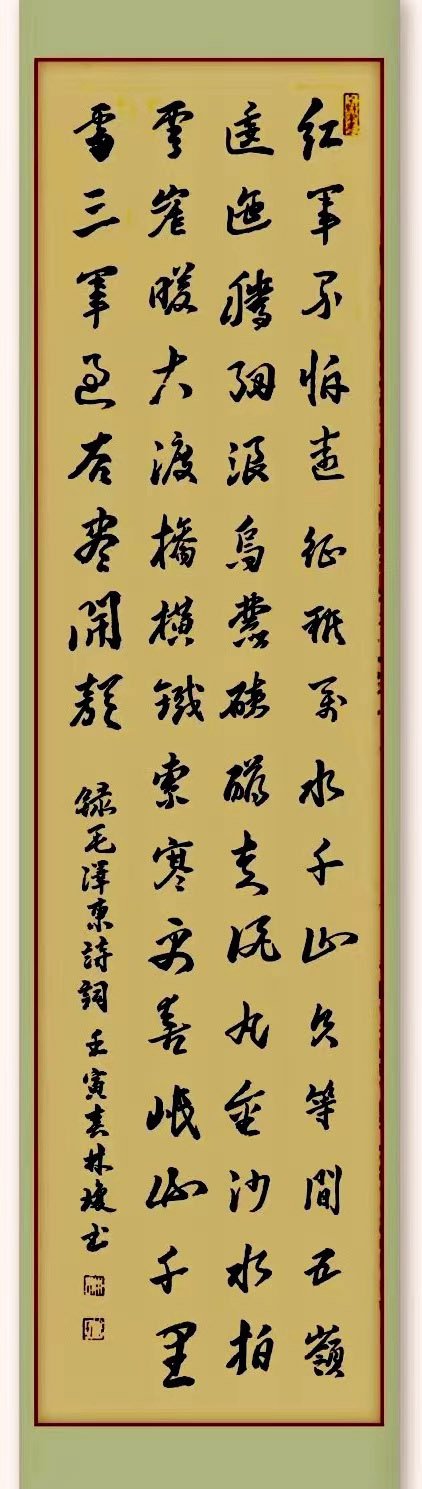 红軍不怕遠征難萬水千山只等間五嶺
逶迤騰細浪烏蒙磅礴走泥丸金沙水拍
雲崖暖大渡橋橫鐵索寒更喜岷山千里
雪三軍過后盡開顏
錄毛澤東詩詞 壬寅春林书